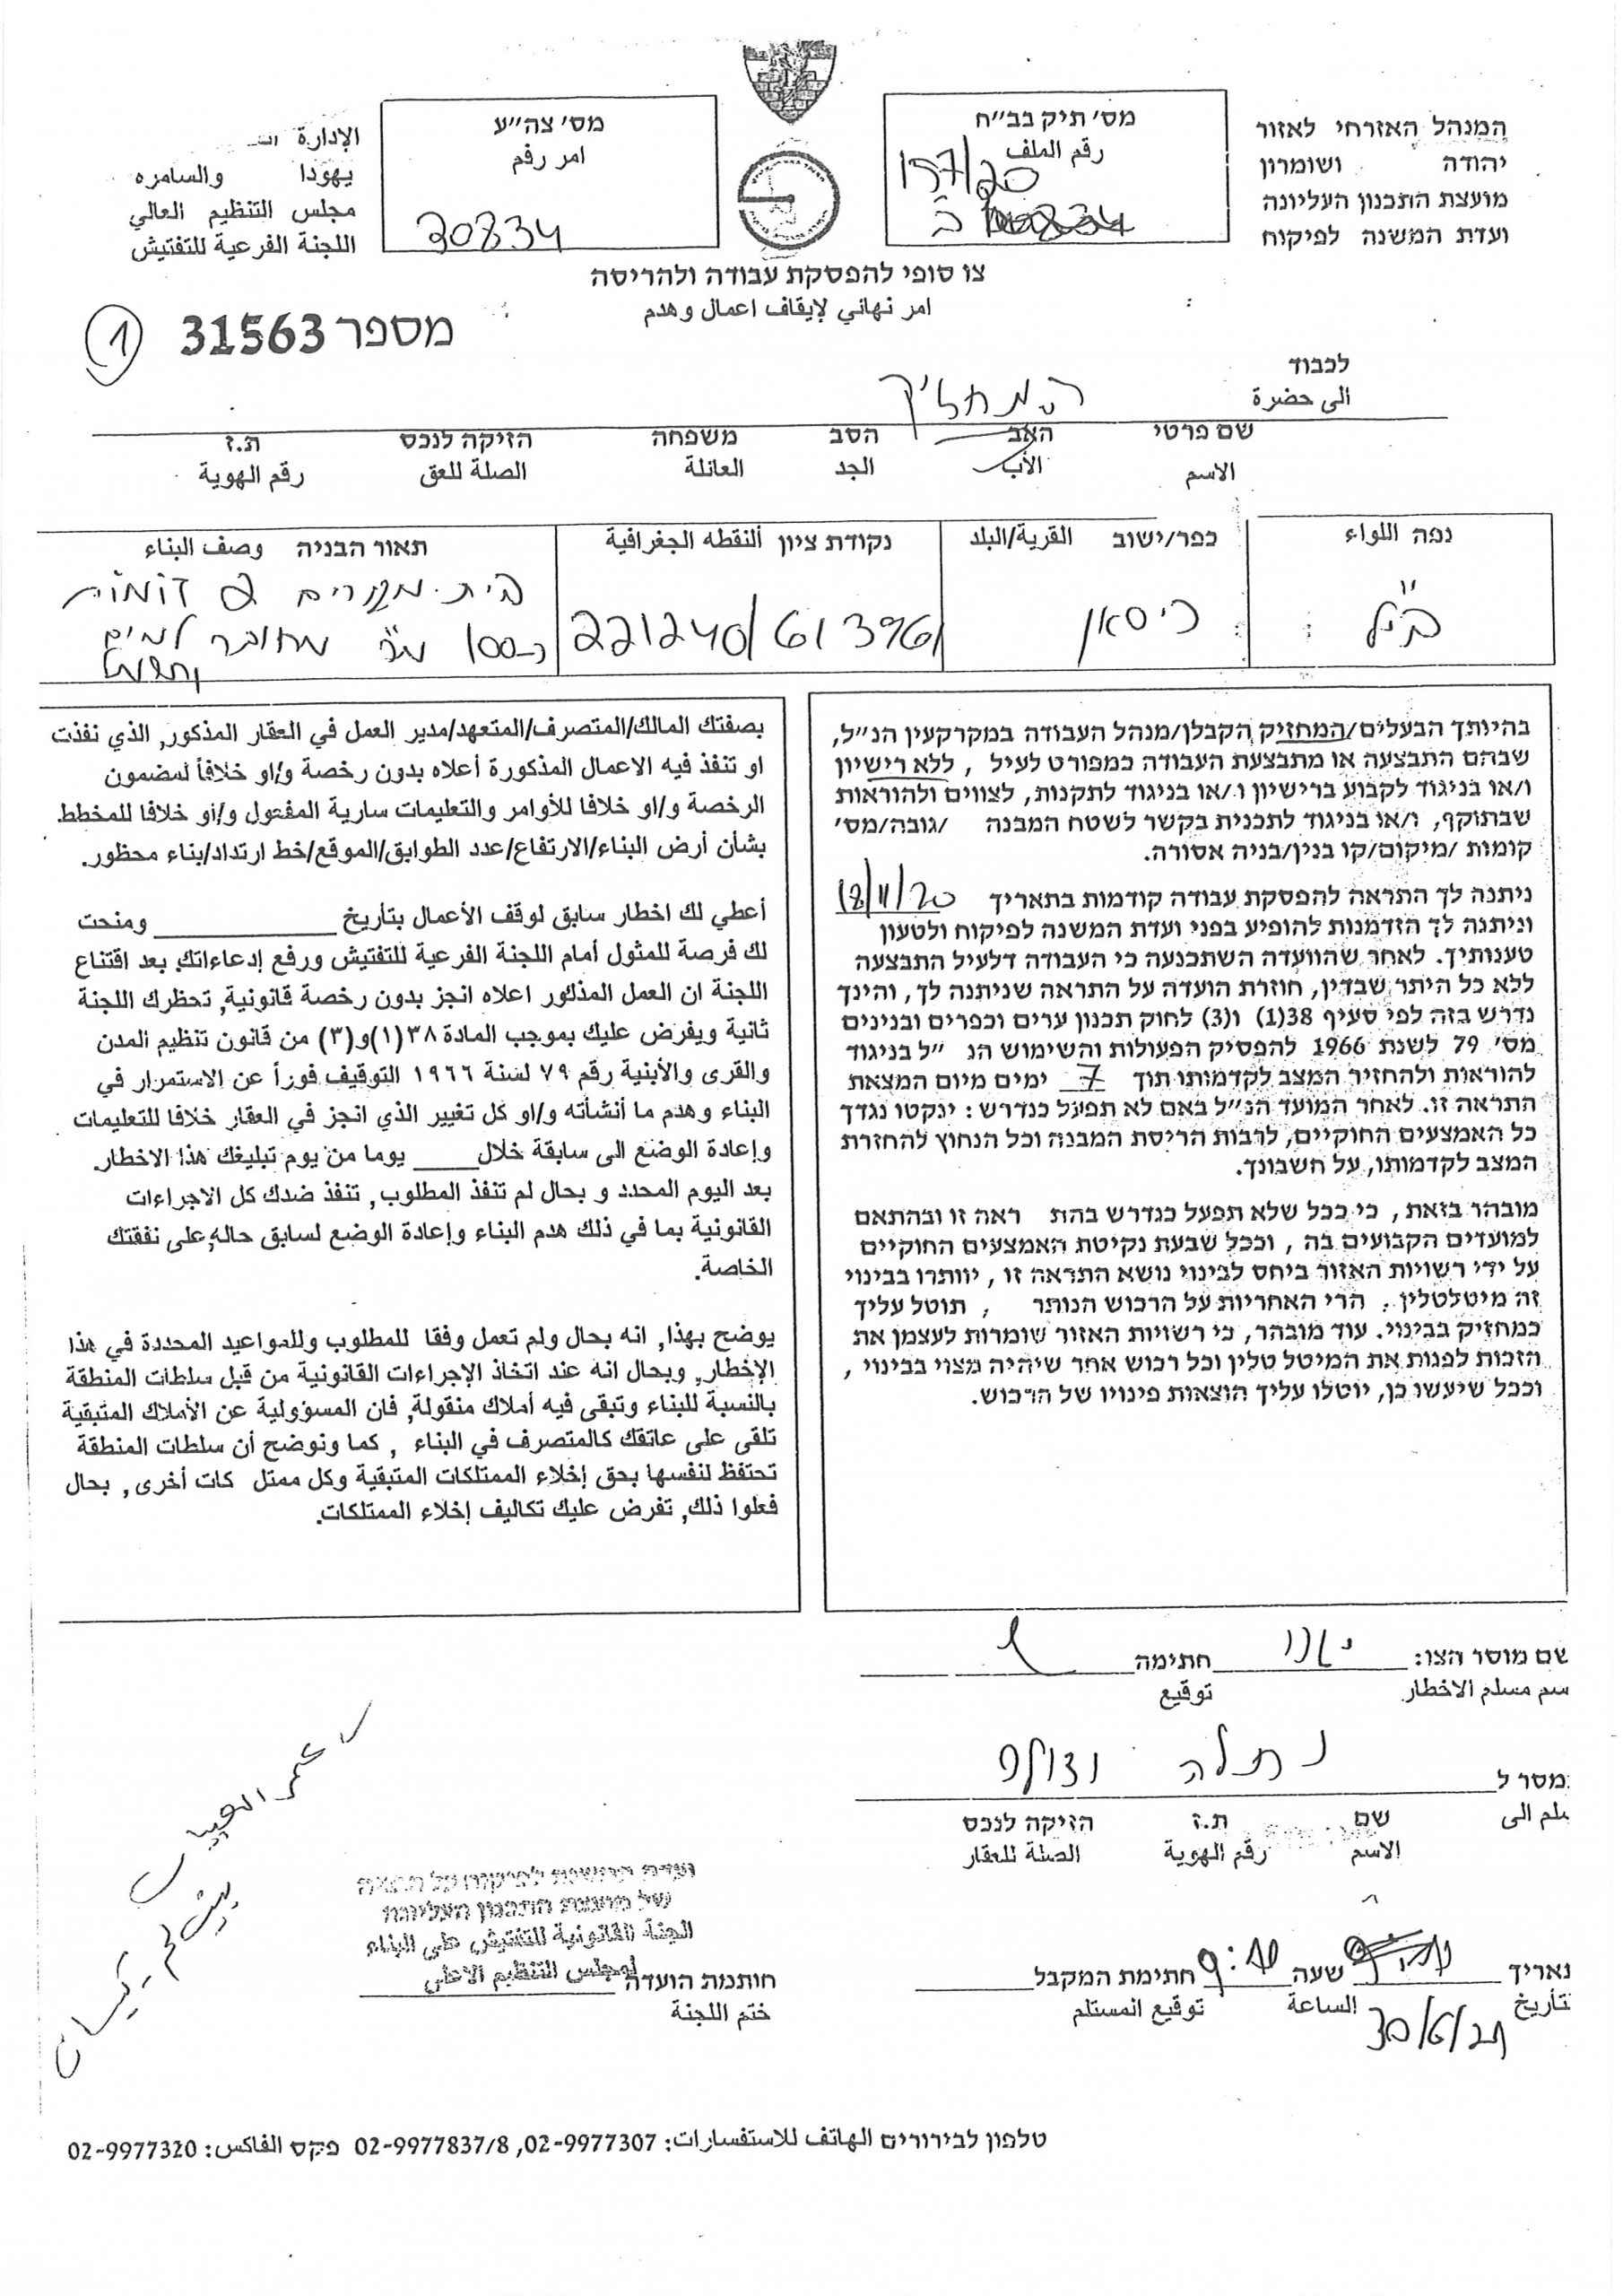 המנהל האזרחי לאזור
יהודה ושומרון
מועצת התכנון העליונה
ועדת המשנה לפיקוח
מס׳ תיק בב״ח
رقم الملف
157/20
מס׳ צה״ע
امر رقم
30834
الإدارة
يهودا والسامره
مجلس التنظيم العالي
اللجنة الفرعية للتفتيش
צו סופי להפסקת עבודה ולהריסה
امر نهائي لإيقاف اعمال وهدم
מספר 31563
1
לכבוד
الى حضرة
המחזיק
שם פרטי האב הסב משפחה הזיקה לנכס ת.ז
الاسم الأب الجد العائلة الصلة للعق رقم الهوية
נפה اللواء
ב״ל
כפר/ישוב القرية/البلد
כיסאן
נקודת ציון ألنقطه الجغرافية
221240/613961
תאור הבניה وصف البناء
בית מגורים
כ-100 מ״ר מחובר למים
בהיותך הבעלים/המחזיק הקבלן/מנהל העבודה במקרקעין הנ״ל,
שבהם התבצעה או מתבצעת העבודה כמפורט לעיל , ללא רישיון
ו/או בניגוד לקבוע ברישיון ו/או בניגוד לתקנות, לצווים ולהוראות
שבתוקף, ו/או בניגוד לתכנית בקשר לשטח המבנה /גובה/מס׳
קומות /מיקום/קו בנין/בניה אסורה.
ניתנה לך התראה להפסקת עבודה קודמות בתאריך 18/11/20
וניתנה לך הזדמנות להופיע בפני ועדת המשנה לפיקוח ולטעון
טענותיך. לאחר שהוועדה השתכנעה כי העבודה דלעיל התבצעה
ללא כל היתר שבדין, חוזרת הועדה על התראה שניתנה לך, והינך
נדרש בזה לפי סעיף 38(1) ו(3) לחוק תכנון ערים וכפרים ובנינים
מס׳ 79 לשנת 1966 להפסיק הפעולות והשימוש הנ ״ל בניגוד
להוראות ולהחזיר המצב לקדמותו תוך 7 ימים מיום המצאת
התראה זו. לאחר המועד הנ״ל באם לא תפעל כנדרש : ינקטו נגדך
כל האמצעים החוקיים, לרבות הריסת המבנה וכל הנחוץ להחזרת
המצב לקדמותו, על חשבונך.
מובהר בזאת, כי ככל שלא תפעל כנדרש בהת ראה זו ובהתאם
למועדים הקבועים בה , וככל שבעת נקיטת האמצעים החוקיים
על ידי רשויות האזור ביחס לבינוי נושא התראה זו , יוותרו בבינוי
זה מיטלטלין , הרי האחריות על הרכוש הנותר , תוטל עליך
כמחזיק בבינוי. עוד מובהר, כי רשויות האזור שומרות לעצמן את
הזכות לפנות את המיטל טלין וכל רכוש אחר שיהיה מצוי בבינוי ,
וככל שיעשו כן, יוטלו עליך הוצאות פינויו של הרכוש.
بصفتك المالك/المتصرف/المتعهد/مدير العمل في العقار المذكور, الذي نفذت
او تنفذ فيه الاعمال المذكورة أعلاه بدون رخصة و/او خلافاً لمضمون
الرخصة و/او خلافا للأوامر والتعليمات سارية المفعول و/او خلافا للمخطط
بشأن أرض البناء/الارتفاع/عدد الطوابق/الموقع/خط ارتداد/بناء محظور.
أعطي لك اخطار سابق لوقف الأعمال بتأريخ ____ ومنحت
لك فرصة للمثول أمام اللجنة الفرعية للتفتيش ورفع إدعاءاتك. بعد اقتناع
اللجنة ان العمل المذكور اعلاه انجز بدون رخصة قانونية, تحظرك اللجنة
ثانية ويفرض عليك بموجب المادة ٣٨(١)و(٣) من قانون تنظيم المدن
والقرى والأبنية رقم ٧٩ لسنة ١٩٦٦ التوقيف فوراً عن الاستمرار في
البناء وهدم ما أنشأته و/او كل تغيير الذي انجز في العقار خلافا للتعليمات
وإعادة الوضع الى سابقة خلال____ يوما من يوم تبليغك هذا الاخطار.
بعد اليوم المحدد و بحال لم تنفذ المطلوب, تنفذ ضدك كل الاجراءات
القانونية بما في ذلك هدم البناء وإعادة الوضع لسابق حاله, على نفقتك
الخاصة.
يوضح بهذا, انه بحال ولم تعمل وفقا للمطلوب وللمواعيد المحددة في هذا
الإخطار, وبحال انه عند اتخاذ الإجراءات القانونية من قبل سلطات المنطقة
بالنسبة للبناء وتبقى فيه أملاك منقولة, فان المسؤولية عن الأملاك المتبقية
تلقى على عاتقك كالمتصرف في البناء , كما ونوضح أن سلطات المنطقة
تحتفظ لنفسها بحق إخلاء الممتلكات المتبقية وكل ممتل كات أخرى, بحال
فعلوا ذلك, تفرض عليك تكاليف إخلاء الممتلكات.
שם מוסר הצו: חתימה
سم مسلم الاخطار توقيع
מסר ל נתלה וצולם
ىلم الى
שם ת.ז הזיקה לנכס
الاسم رقم الهوية الصلة للعقار
תאריך שעה חתימת המקבל
تأريخ الساعة توقيع المستلم
30/6/21
של מועצת התכנון העליונה
لمجلس التنظيم الاعلى
חותמת הועדה
ختم اللجنة
טלפון לבירורים الهاتف للاستفسارات: 02-9977307, 02-9977837/8 פקס الفاكس: 02-9977320